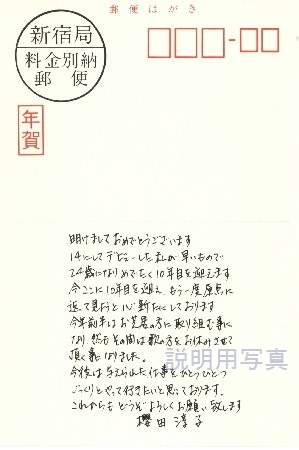 郵便はがき
新宿局
料金別納
郵便
年賀
明けましておめでとうございます
14にしてデビューした私が早いもので
24歳になりめでたく10年目を迎えます
今ここに10年目を迎え、もう一度原点に
返って見ようと心新たにしております
今年前半はお芝居の方に取り組む事に
なり、然もその間は歌の方をお休みさせて
頂く事になりました。
今後は与えられた仕事をひとつひとつ
じっくりとやって行きたいと思っております。
これからもどうぞよろしくお願い致します
櫻田淳子
説明用写真